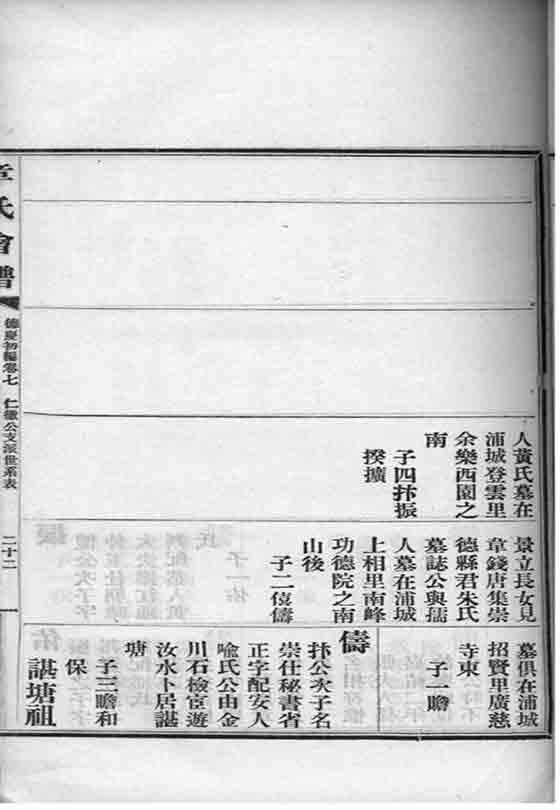 人黃氏墓在
浦城登雲里
余樂西園之
南
子四抃振
揆擴
景立長女見
章錢唐集崇
德縣君朱氏
墓誌公與孺
人墓在浦城
上相里南峰
功德院之南
山後
子二僖儔
墓俱在浦城
招賢里廣慈
寺東
子一瞻
儔
抃公次子名
崇仕秘書省
正字配安人
喻氏公由金
川石檢宦遊
汝水卜居諶
塘
子三瞻和
保
諶塘祖
章氏會譜
德慶初編卷七
仁徹公支派世系表
二十二